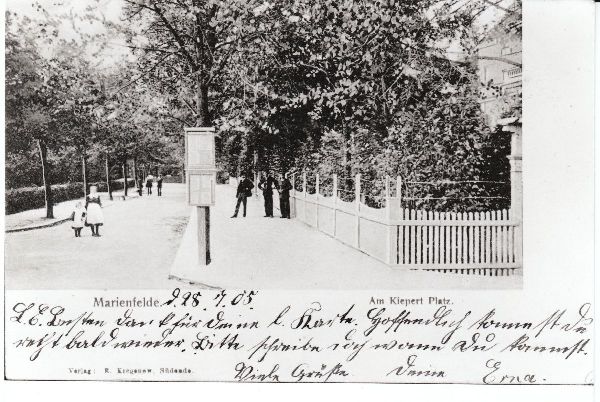 Marienfelde. d. 28. 7. 05 Am Kiepert Platz.
L. E. Besten Dank für deine l. Karte. Hoffendlich kommst Du
recht bald wieder. Bitte schreibe doch wann Du kommst.
Verlag: R. Kregenow, Südende. Viele Grüße Deine Erna.